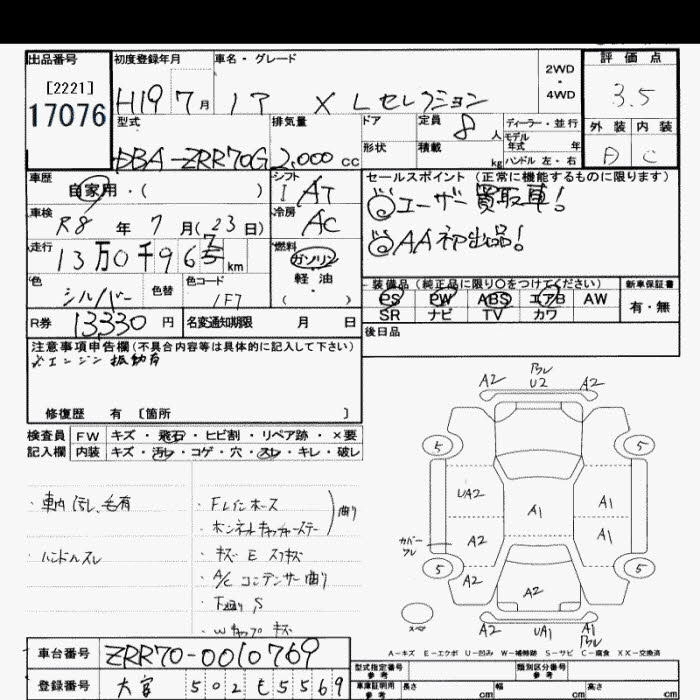 出品番号
[2221]
17076
初度登録年月
H19 7月
車名・グレード
ノア X Lセレクション
2WD
・
4WD
評価点
3.5
外装 内装
D C
型式
DBA-ZRR70G
排気量
2,000 cc
ドア
定員 8人
ディーラー・並行
モデル
年式 年
形状
積載 kg
ハンドル 左・右
車歴
自家用・( )
シフト
I AT
車検
R8年7月(23日)
冷房
AC
走行
13万0千96 km
燃料
ガソリン
軽油
( )
色
シルバー
色替
色コード
1F7
R券 13330円
名変通知期限 月 日
セールスポイント (正常に機能するものに限ります)
◎ユーザー買取車!
◎AA初出品!
装備品 (純正品に限り○をつけてください)
PS PW ABS エアB AW
SR ナビ TV カワ
新車保証書
有・無
後日品
注意事項申告欄 (不具合内容等は具体的に記入して下さい)
※エンジン振動有
修復歴 有 [箇所 ]
検査員
記入欄
FW キズ・飛石・ヒビ割・リペア跡・×要
内装 キズ・汚レ・コゲ・穴・スレ・キレ・破レ
・車内汚レ、毛有
・ハンドルスレ
・Fレインホース
・ボンネットキャッチャーステー
曲り
・キズ E スリキズ
・A/C コンデンサー曲り
・下廻り S
・Wキャップキズ
A2 カレ U2 A2
5 5
UA2 A1 A1
A2 A1
カバー
カレ
5 A2 A2 5
スペア
A2 UA1 A1
カレ
A-キズ E-エクボ U-凹み W-補修跡 S-サビ C-腐食 XX-交換済
車台番号 ZRR70-0010769
登録番号 大宮 502 も 5569
型式指定番号
参考
類別区分番号
参考
車庫証明用
参考
長さ cm
幅 cm
高さ cm